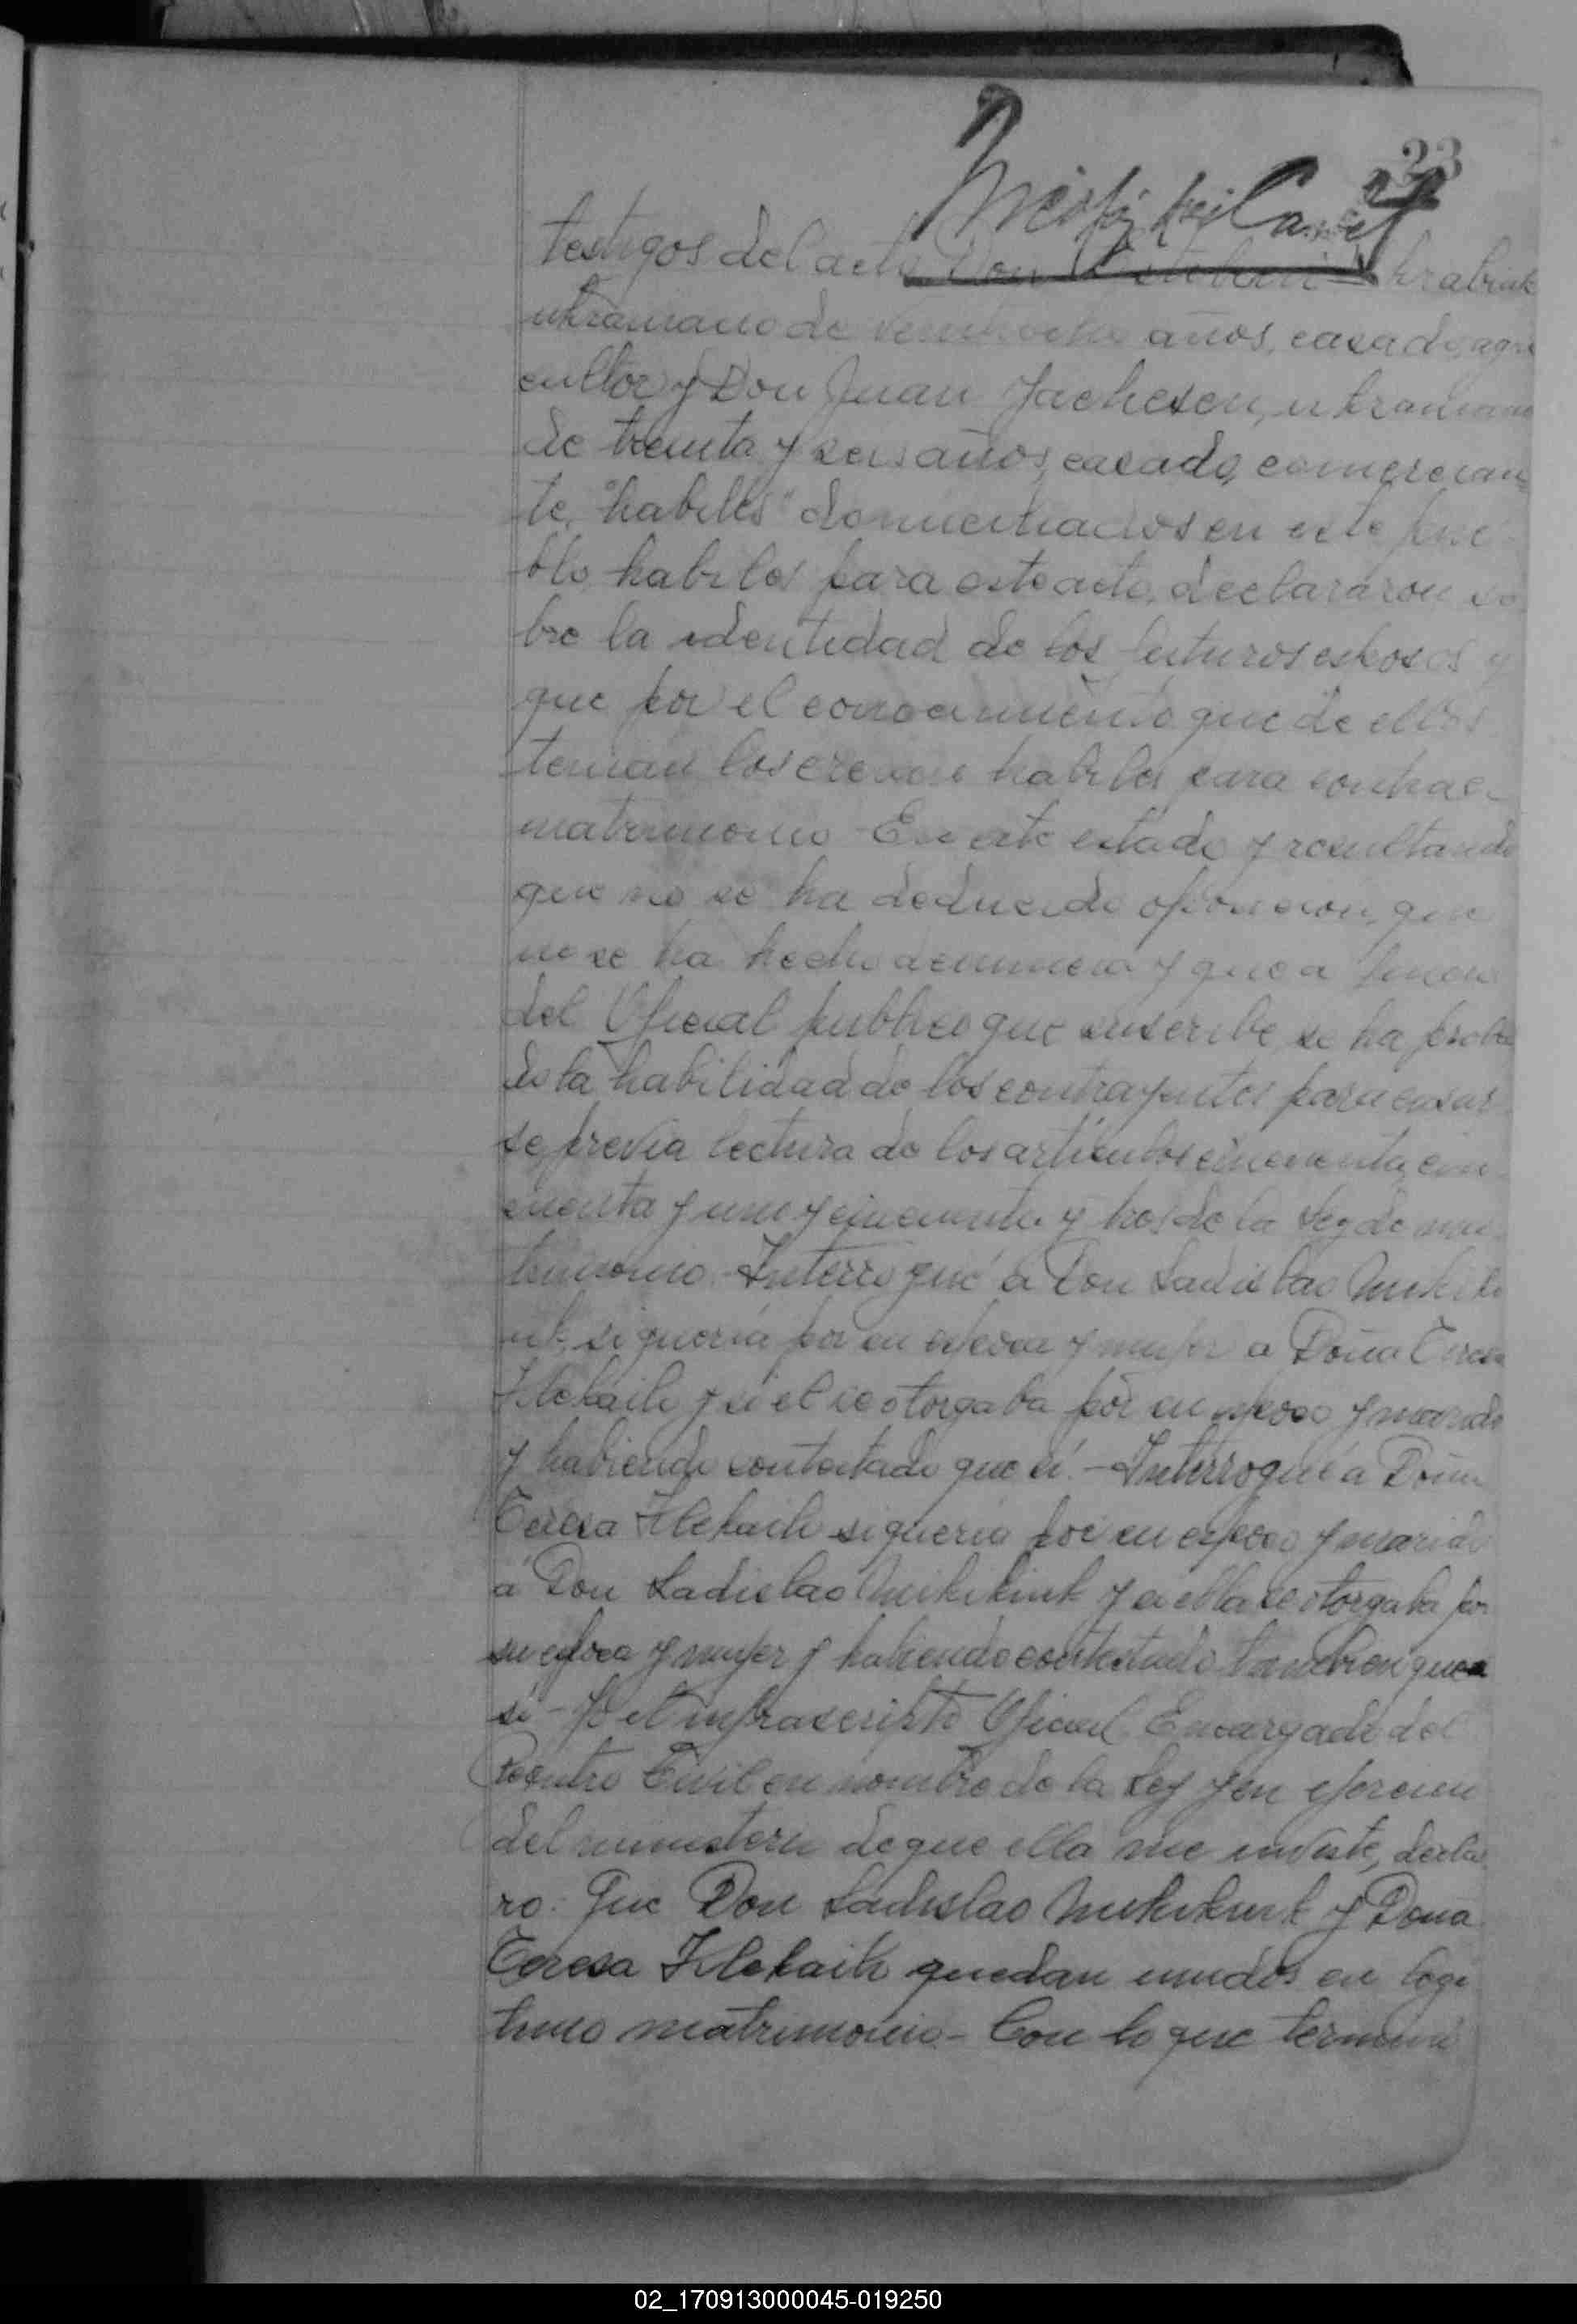 23
testigos del acto Don Esteban Hrabiuk
ukraniano de veintiocho años, casado, agri
cultor y Don Juan Jachesen, ukraniano
de treinta y seis años, casado, comercian
te, "habiles" domiciliados en este pue
blo, habiles para este acto, declararon so
bre la identidad de los futuros esposos y
que por el conocimiento que de ellos
tenian los creian habiles para contraer
matrimonio - En este estado y resultando
que no se ha deducido oposicion, que
no se ha hecho denuncia y que a juicio
del Oficial publico que suscribe, se ha proba
do la habilidad de los contrayentes para casar
se, previa lectura de los articulos cincuenta, cin
cuenta y uno y cincuenta y tres de la Ley de ma
trimonio - Interrogué a Don Ladislao Mikiki
uk, si queria por su esposa y mujer a Doña Teresa
Klekailo y si el se otorgaba por su esposo y marido
y habiendo contestado que sí. - Interrogué a Doña
Teresa Klekailo si queria por su esposo y marido
a Don Ladislao Mikikiuk y si ella se otorgaba por
su esposa y mujer y habiendo contestado tambien que
sí - Yo el infrascripto Oficial Encargado del
Registro Civil en nombre de la Ley y en ejercicio
del ministerio de que ella me inviste, decla
ro: Que Don Ladislao Mikikiuk y Doña
Teresa Klekailo quedan unidos en legi
timo matrimonio - Con lo que terminó
02_170913000045-019250